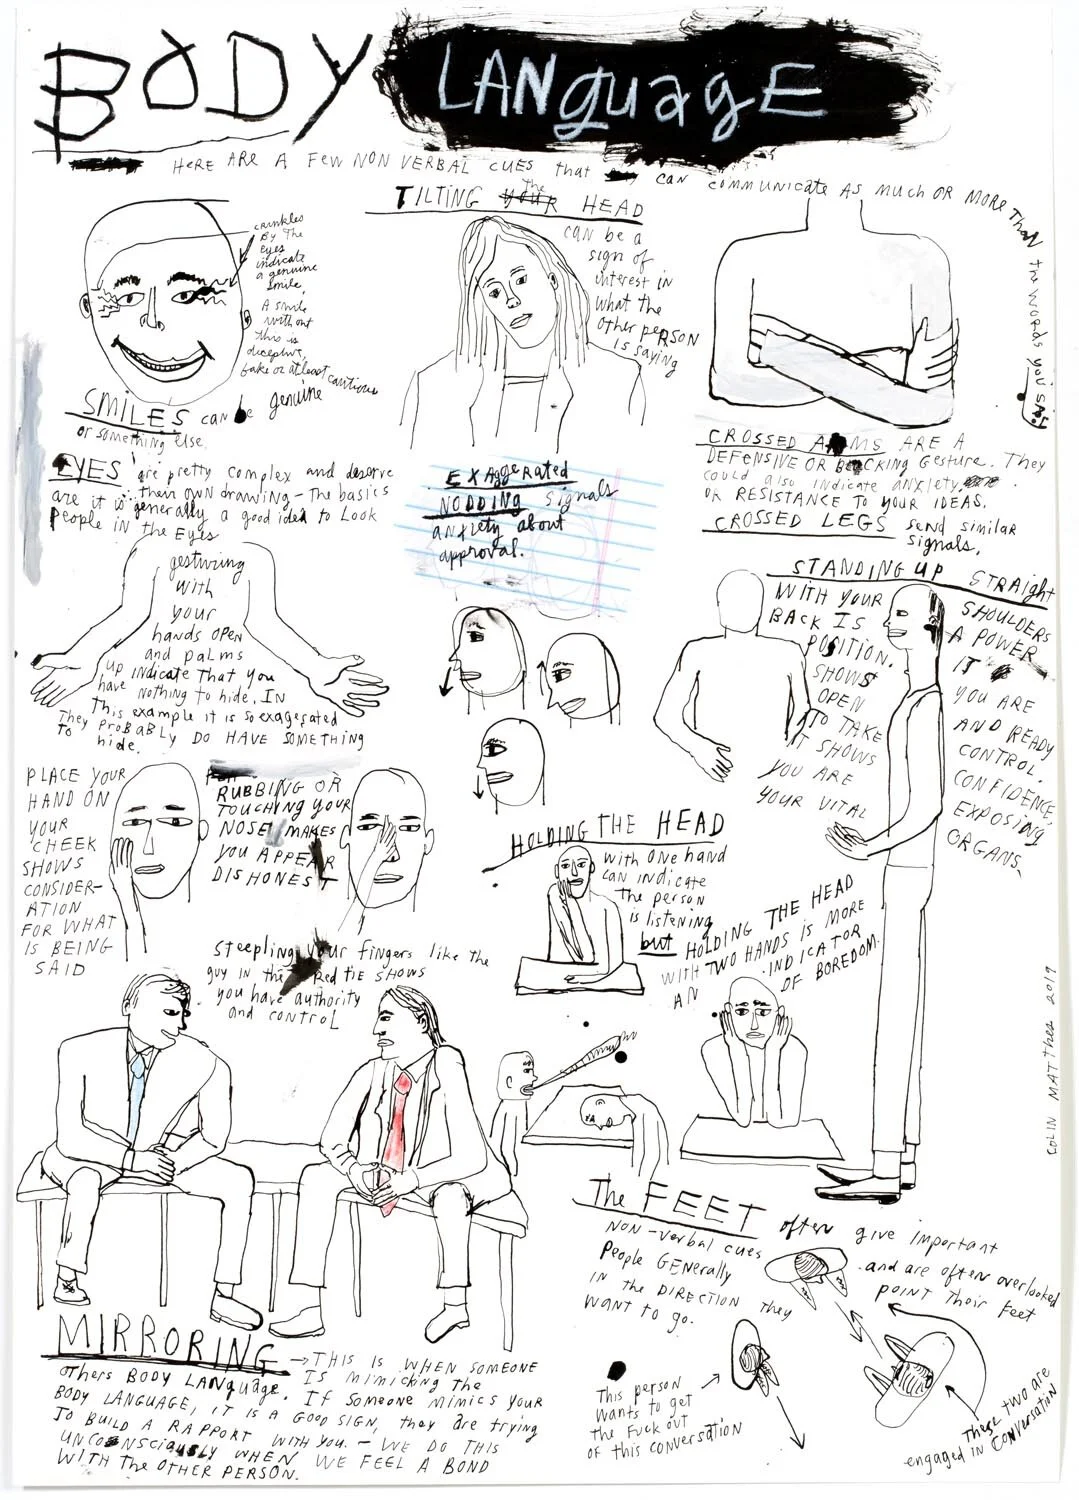 BODY LANguagE
HERE ARE A FEW NON VERBAL CUES that can communicate AS MUCH OR MORE THAN THE WORDS YOU SAY.
crinkles
By The
Eyes
indicate
a genuine
smile,
A smile
without
this is
deceptive,
fake or at least cautious
SMILES can be genuine
or something else
TILTING the HEAD
can be a
sign of
interest in
what the
other person
is saying
CROSSED ARMS ARE A
DEFENSIVE OR BLOCKING Gesture. They
could also indicate anxiety,
OR RESISTANCE TO YOUR IDEAS.
CROSSED LEGS send similar
signals,
EYES are pretty complex and deserve
their own drawing – the basics
are it is generally a good idea to Look
people in the Eyes
EXAGGERATED
NODDING signals
anxiety about
approval.
gesturing
with
your
hands OPEN
and palms
up indicate that you
have nothing to hide. IN
This example it is so exagerated
They PROBABLY DO HAVE SOMETHING
To hide.
STANDING UP STRAIGHT
WITH YOUR SHOULDERS
BACK IS A POWER
POSITION. IT
SHOWS YOU ARE
OPEN AND READY
TO TAKE CONTROL.
IT SHOWS CONFIDENCE,
YOU ARE EXPOSING
YOUR VITAL ORGANS.
PLACE YOUR
HAND ON
YOUR
CHEEK
SHOWS
CONSIDER-
ATION
FOR WHAT
IS BEING
SAID
RUBBING OR
TOUCHING YOUR
NOSE MAKES
YOU APPEAR
DISHONEST
HOLDING THE HEAD
with one hand
can indicate
The person
is listening
but HOLDING THE HEAD
WITH TWO HANDS IS MORE
AN INDICATOR
OF BOREDOM.
Steepling your fingers like the
guy in the Red tie SHOWS
you have authority
and control
COLIN MATTHES 2019
The FEET often give important
NON-verbal cues and are often overlooked
People GENErally POINT Their feet
IN the DIRECTION they
WANT to go.
This person
wants to get
the Fuck out
of this conversation
These two are
engaged in conversation
MIRRORING → THIS IS WHEN SOMEONE
IS MIMICKING THE
others BODY LANguage. IF SOMEONE MIMICS YOUR
BODY LANGUAGE, IT IS A GOOD SIGN, they are trying
TO BUILD A RAPPORT WITH YOU. – WE DO THIS
UNCONSCIOUSLY WHEN WE FEEL A BOND
WITH THE OTHER PERSON.